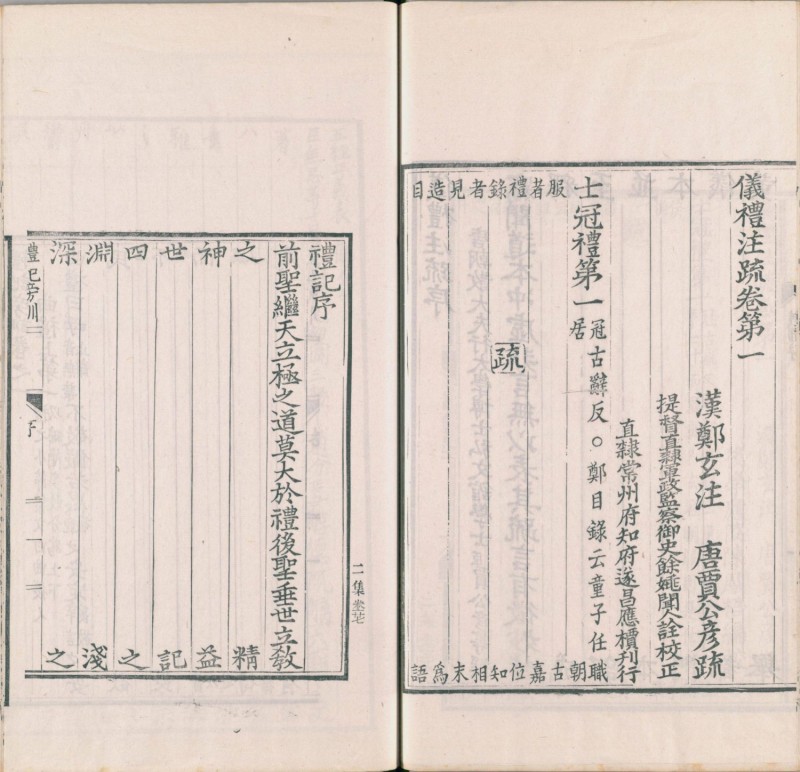 儀禮注疏卷第一
漢鄭玄注 唐賈公彥疏
提督直隸軍政監察御史餘姚聞人詮校正
直隸常州府知府遂昌應檟刊行
士冠禮第一 冠古辭反○鄭目錄云童子任職
居 朝
服 古
者 嘉
禮 位
疏
錄 知
者 相
見 末
造 爲
目 語
二集
禮記序
前聖繼天立極之道莫大於禮後聖垂世立敎
之 精
神 益
世 記
四 之
淵 淺
深 之